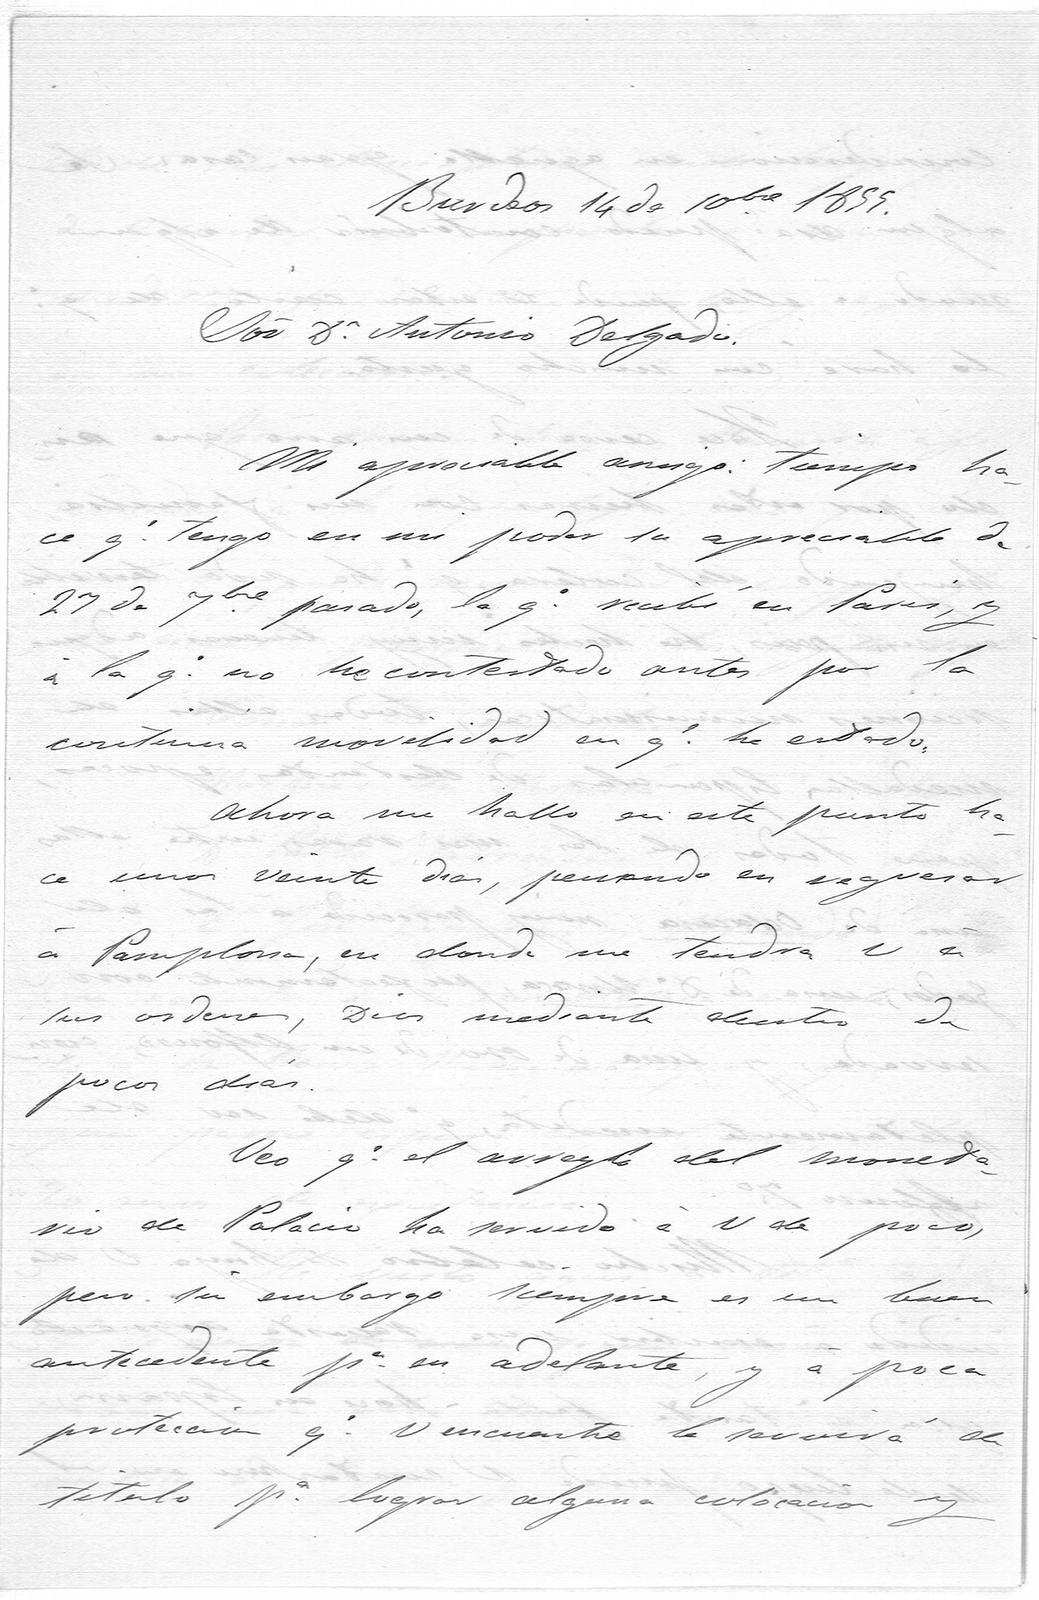 Burdeos 14 de 10bre 1855.
Sor Dn. Antonio Delgado.
Mi apreciable amigo: tiempo ha-
ce q.e tengo en mi poder su apreciable de
27 de 7bre pasado, la q.e recibí en Paris, y
à la q.e no he contestado antes por la
continua movilidad en q.e he estado.
Ahora me hallo en este punto ha-
ce unos veinte dias, pensando en regresar
à Pamplona, en donde me tendrá V à
sus ordenes, Dios mediante dentro de
pocos dias.
Veo q.e el arreglo del moneta-
rio de Palacio ha servido à V de poco,
pero sin embargo siempre es un buen
antecedente p.a en adelante, y à poca
proteccion q.e V encuentre le servirá de
titulo p.a lograr alguna colocacion y